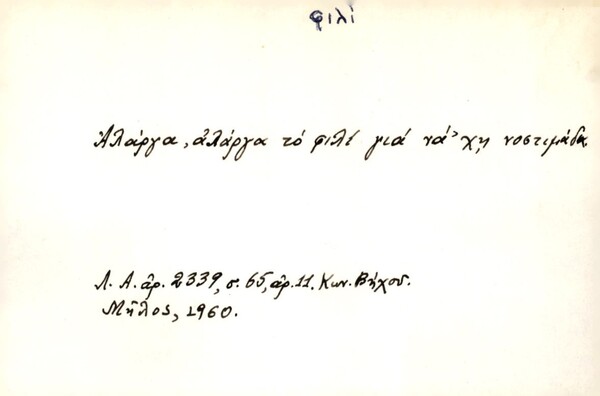 φιλί
Ἀλάργα, ἀλάργα τό φιλί γιά νά 'χῃ νοστιμάδα
Λ. Α. ἀρ. 2339, σ. 65, ἀρ. 11. Κων. Βήχου.
Μῆλος, 1960.